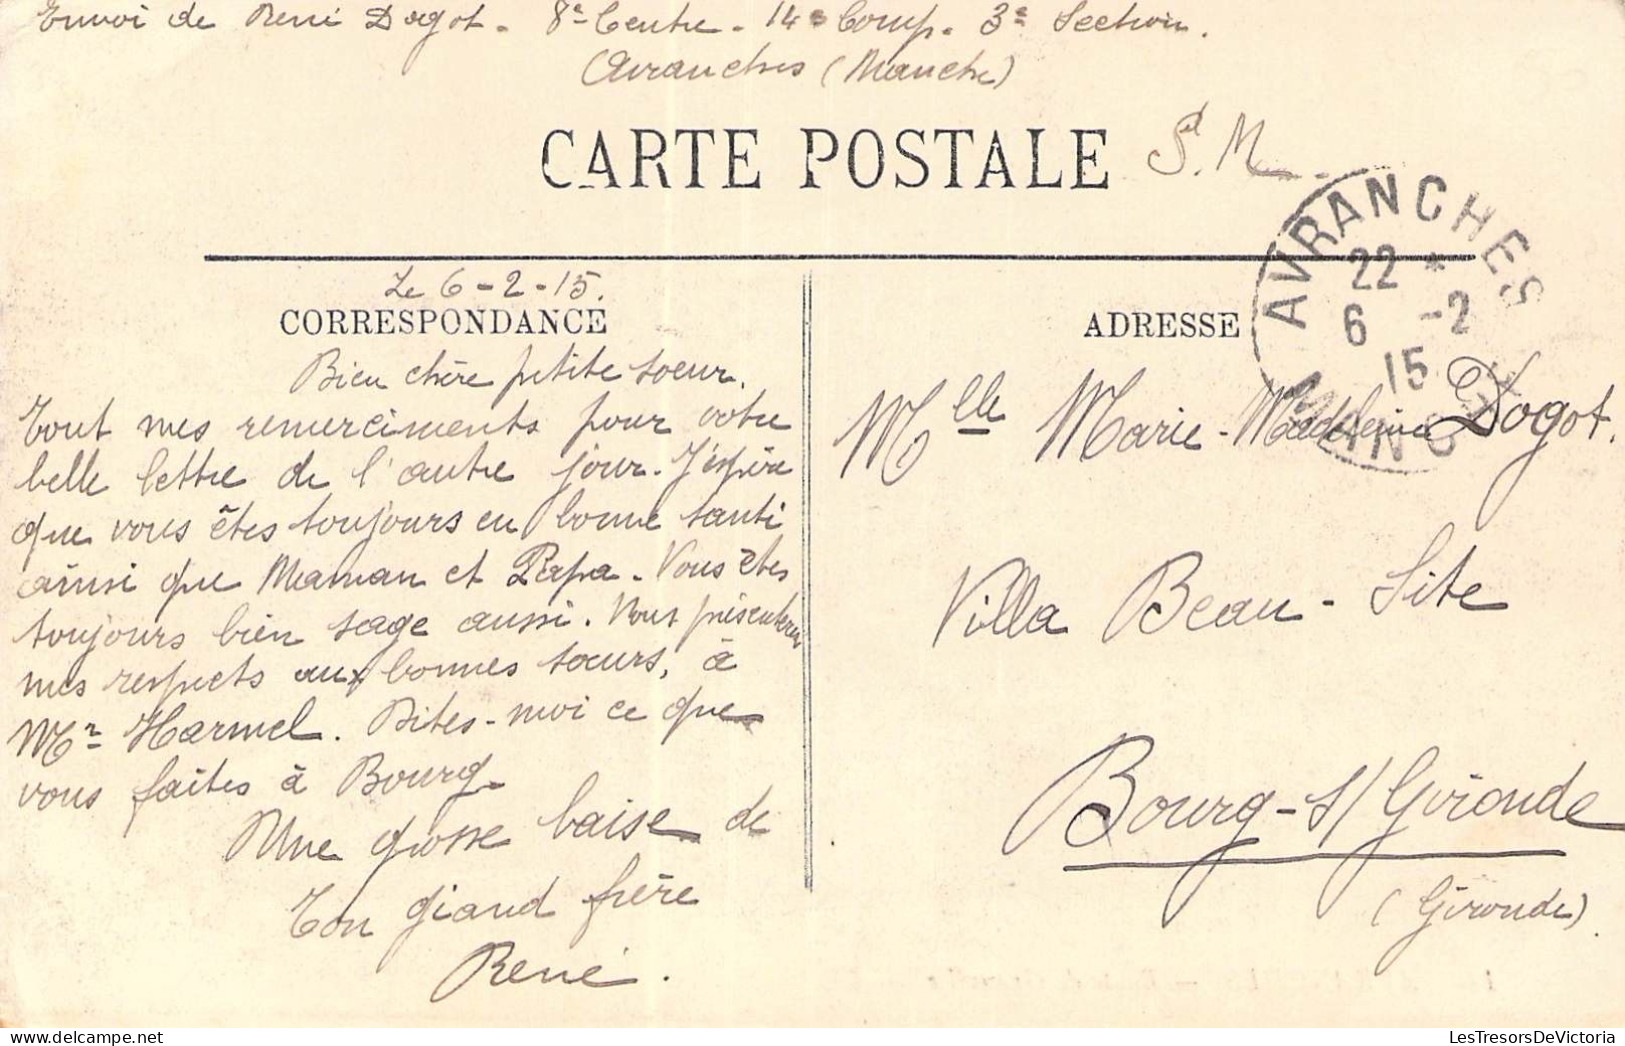 Envoi de René Dogot - 8e Centre - 14e Comp. 3e Section.
Avranches (Manche)
CARTE POSTALE
S.M.
AVRANCHES
22 *
6 -2
15
MANCHE
Le 6-2-15.
CORRESPONDANCE
Bien chère petite soeur.
Tout mes remerciments pour votre
belle lettre de l'autre jour. J'espère
que vous êtes toujours en bonne santé
ainsi que Maman et Papa. Vous êtes
toujours bien sage aussi. Vous présenterez
mes respects aux bonnes soeurs, à
Mr Harmel. Dites-moi ce que
vous faites à Bourg.
Une grosse baise de
Ton grand frère
René.
ADRESSE
Mlle Marie-Madeleine Dogot.
Villa Beau-Site
Bourg-s/Gironde
(Gironde).
LesTresorsDeVictoria